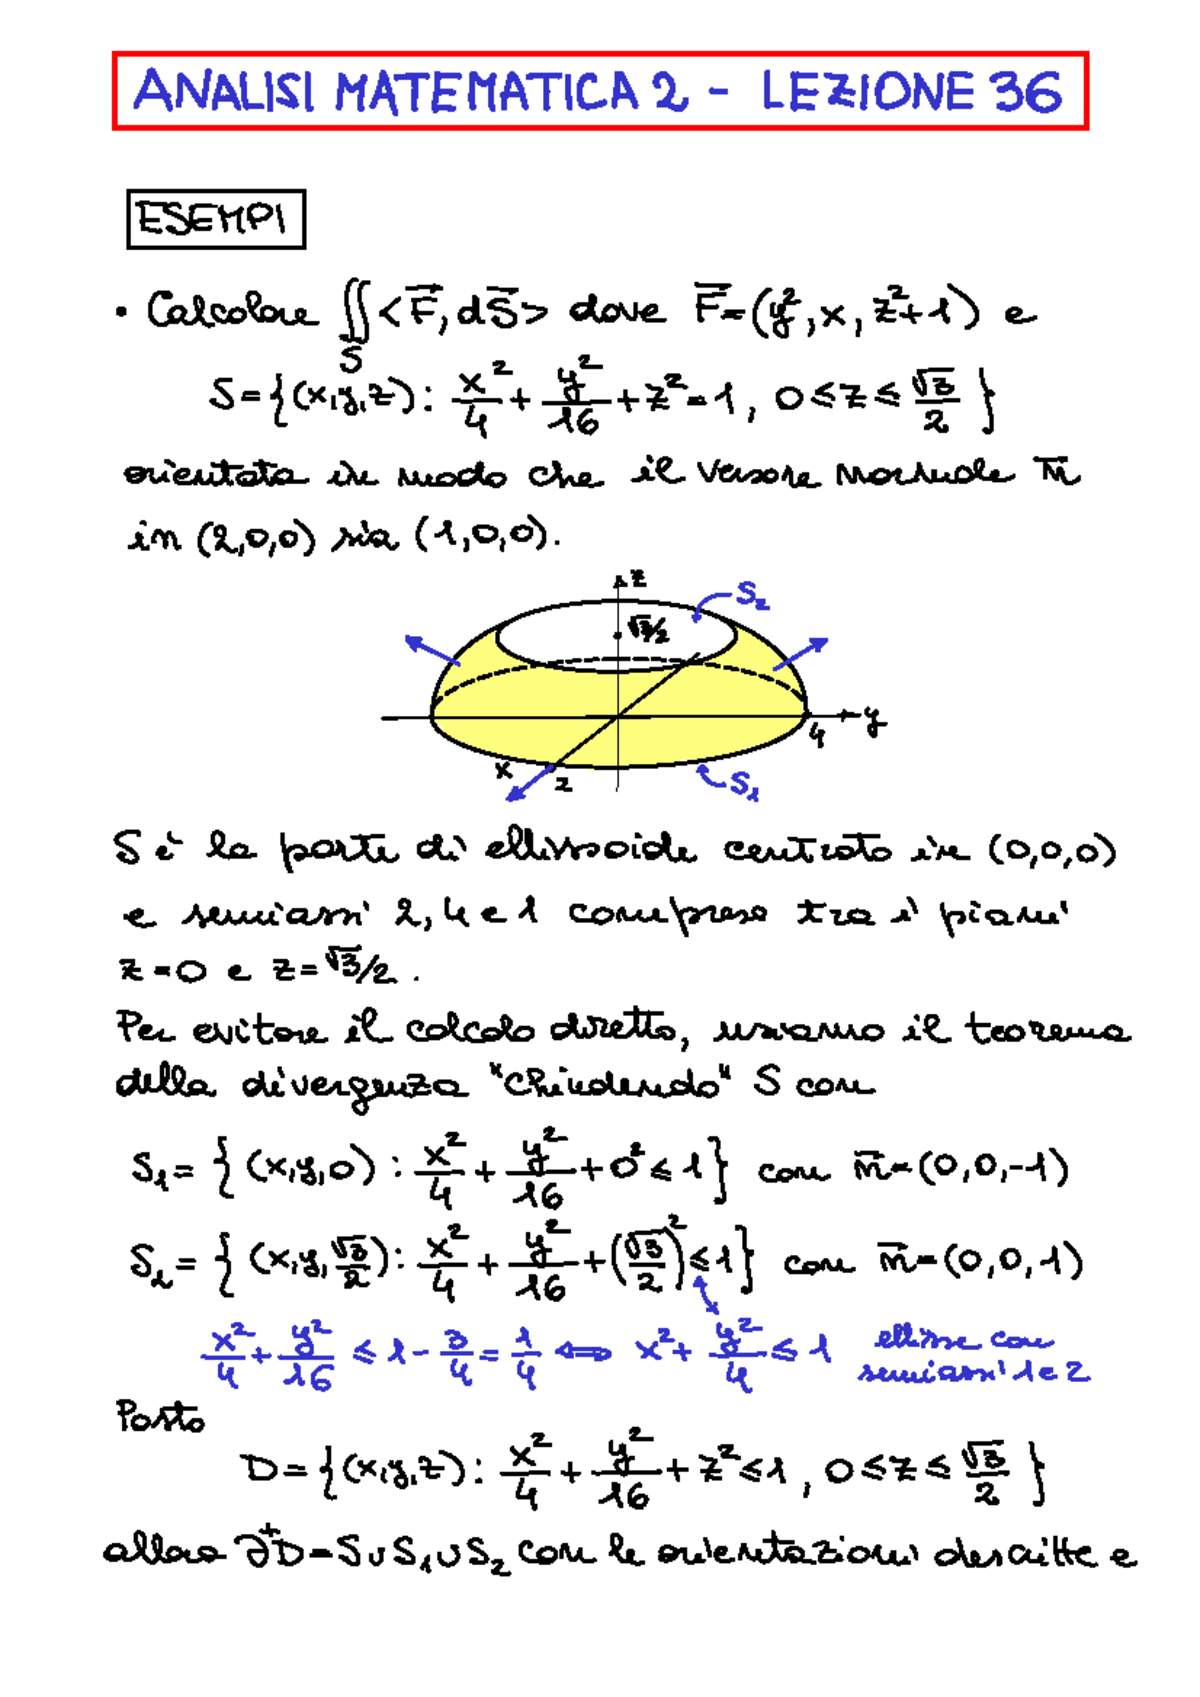 ANALISI MATEMATICA 2 - LEZIONE 36
ESEMPI
• Calcolare ∬_S <F⃗, dS⃗> dove F⃗=(y², x, z²+1) e
S={(x,y,z): x²/4 + y²/16 + z²=1, 0≤z≤ √3/2 }
orientata in modo che il versore normale n⃗
in (2,0,0) sia (1,0,0).
z
S₂
√3/2
y
4
x
2
S₁
S è la parte di ellissoide centrato in (0,0,0)
e semiassi 2, 4 e 1 compreso tra i piani
z=0 e z=√3/2.
Per evitare il calcolo diretto, usiamo il teorema
della divergenza "chiudendo" S con
S₁= { (x,y,0) : x²/4 + y²/16 + 0² ≤ 1} con n⃗=(0,0,-1)
S₂ = { (x,y,√3/2): x²/4 + y²/16 + (√3/2)² ≤ 1} con n⃗=(0,0,1)
x²/4 + y²/16 ≤ 1 - 3/4 = 1/4 ⟺ x²+ y²/4 ≤ 1 ellisse con
semiassi 1 e 2
Posto
D={(x,y,z): x²/4 + y²/16 + z²≤1, 0≤z≤ √3/2 }
allora ∂⁺D=S∪S₁∪S₂ con le orientazioni descritte e